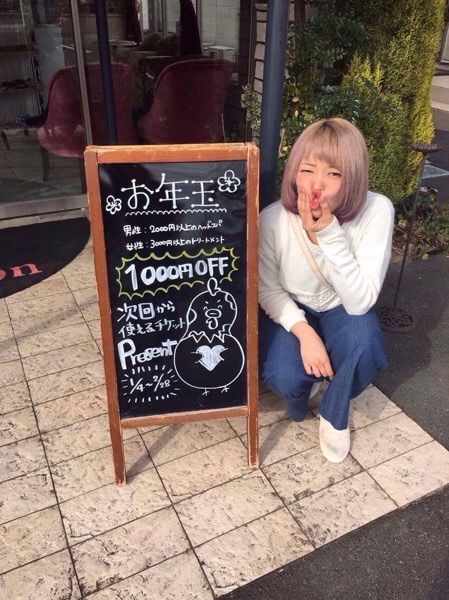 お年玉
男性：2000円以上のヘッドスパ
女性：3000円以上のトリートメント
1000円OFF
次回から
使えるチケット
Present
1/4～2/28
on